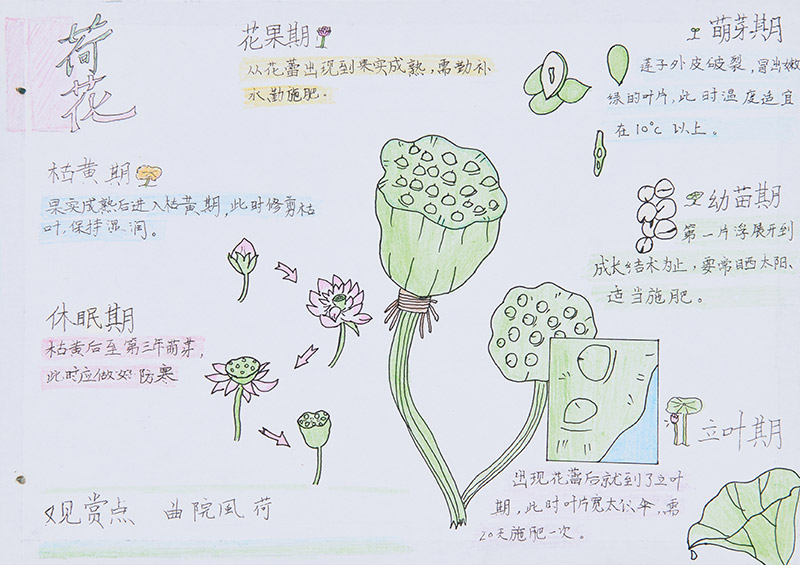 荷花
花果期
从花蕾出现到果实成熟,需勤补
水勤施肥.
萌芽期
莲子外皮破裂,冒出嫩
绿的叶片,此时温度适宜
在10℃以上。
枯黄期
果实成熟后进入枯黄期,此时修剪枯
叶,保持湿润。
幼苗期
第一片浮展开到
成长结术为止,要常晒太阳、
适当施肥。
休眠期
枯黄后至第三年萌芽,
此时应做好防寒
立叶期
出现花蕾后就到了立叶
期,此时叶片宽大似伞,需
20天施肥一次。
观赏点 曲院风荷